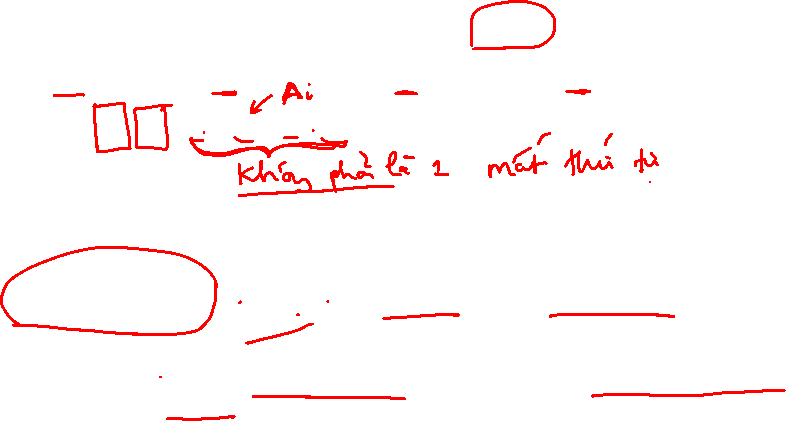 Ai
không phải là 1 mất thứ tự